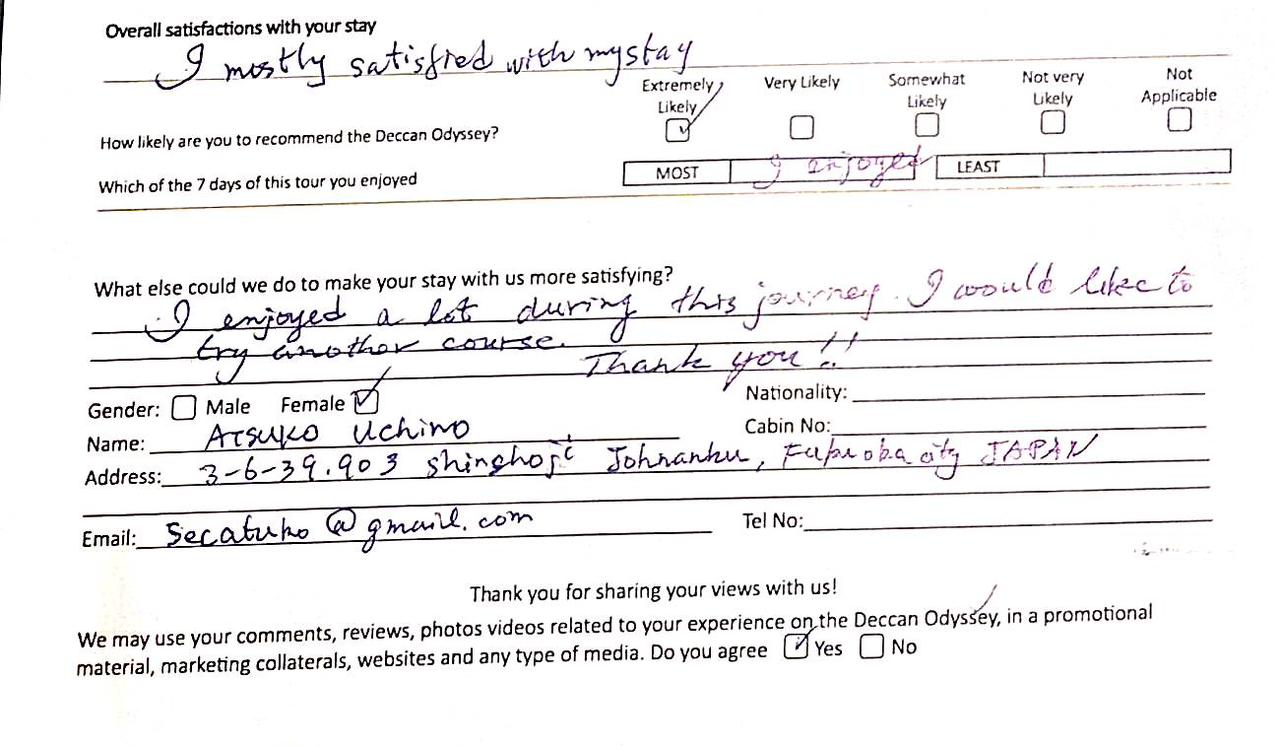 Overall satisfactions with your stay
I mostly satisfied with my stay
Extremely Likely Very Likely Somewhat Likely Not very Likely Not Applicable
How likely are you to recommend the Deccan Odyssey?
Which of the 7 days of this tour you enjoyed MOST I enjoyed LEAST
What else could we do to make your stay with us more satisfying?
I enjoyed a lot during this journey. I would like to
try another course. Thank you!!
Gender: Male Female Nationality:
Name: Atsuko Uchino Cabin No:
Address: 3-6-39.903 Shinghoji Johnanku, Fukuoka city JAPAN
Email: Secatuko@gmail.com Tel No:
Thank you for sharing your views with us!
We may use your comments, reviews, photos videos related to your experience on the Deccan Odyssey, in a promotional
material, marketing collaterals, websites and any type of media. Do you agree Yes No